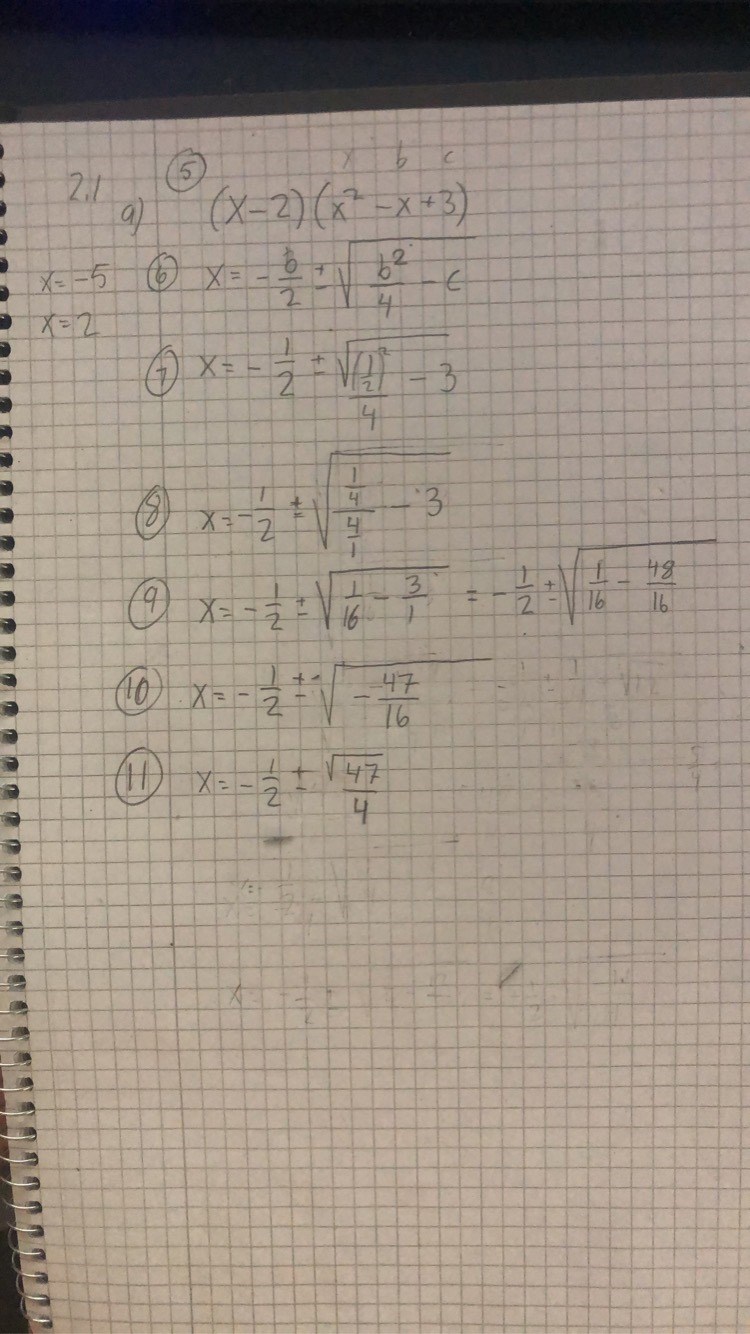 2.1 a) ⑤ x b c
(x-2)(x² - x + 3)
x = -5 ⑥ x = - b/2 ± √(b²/4 - c)
x = 2
⑦ x = - 1/2 ± √((1/2)²/4 - 3)
⑧ x = - 1/2 ± √((1/4)/(4/1) - 3)
⑨ x = - 1/2 ± √(1/16 - 3/1) = - 1/2 ± √(1/16 - 48/16)
⑩ x = - 1/2 ± √(- 47/16)
⑪ x = - 1/2 ± √47/4